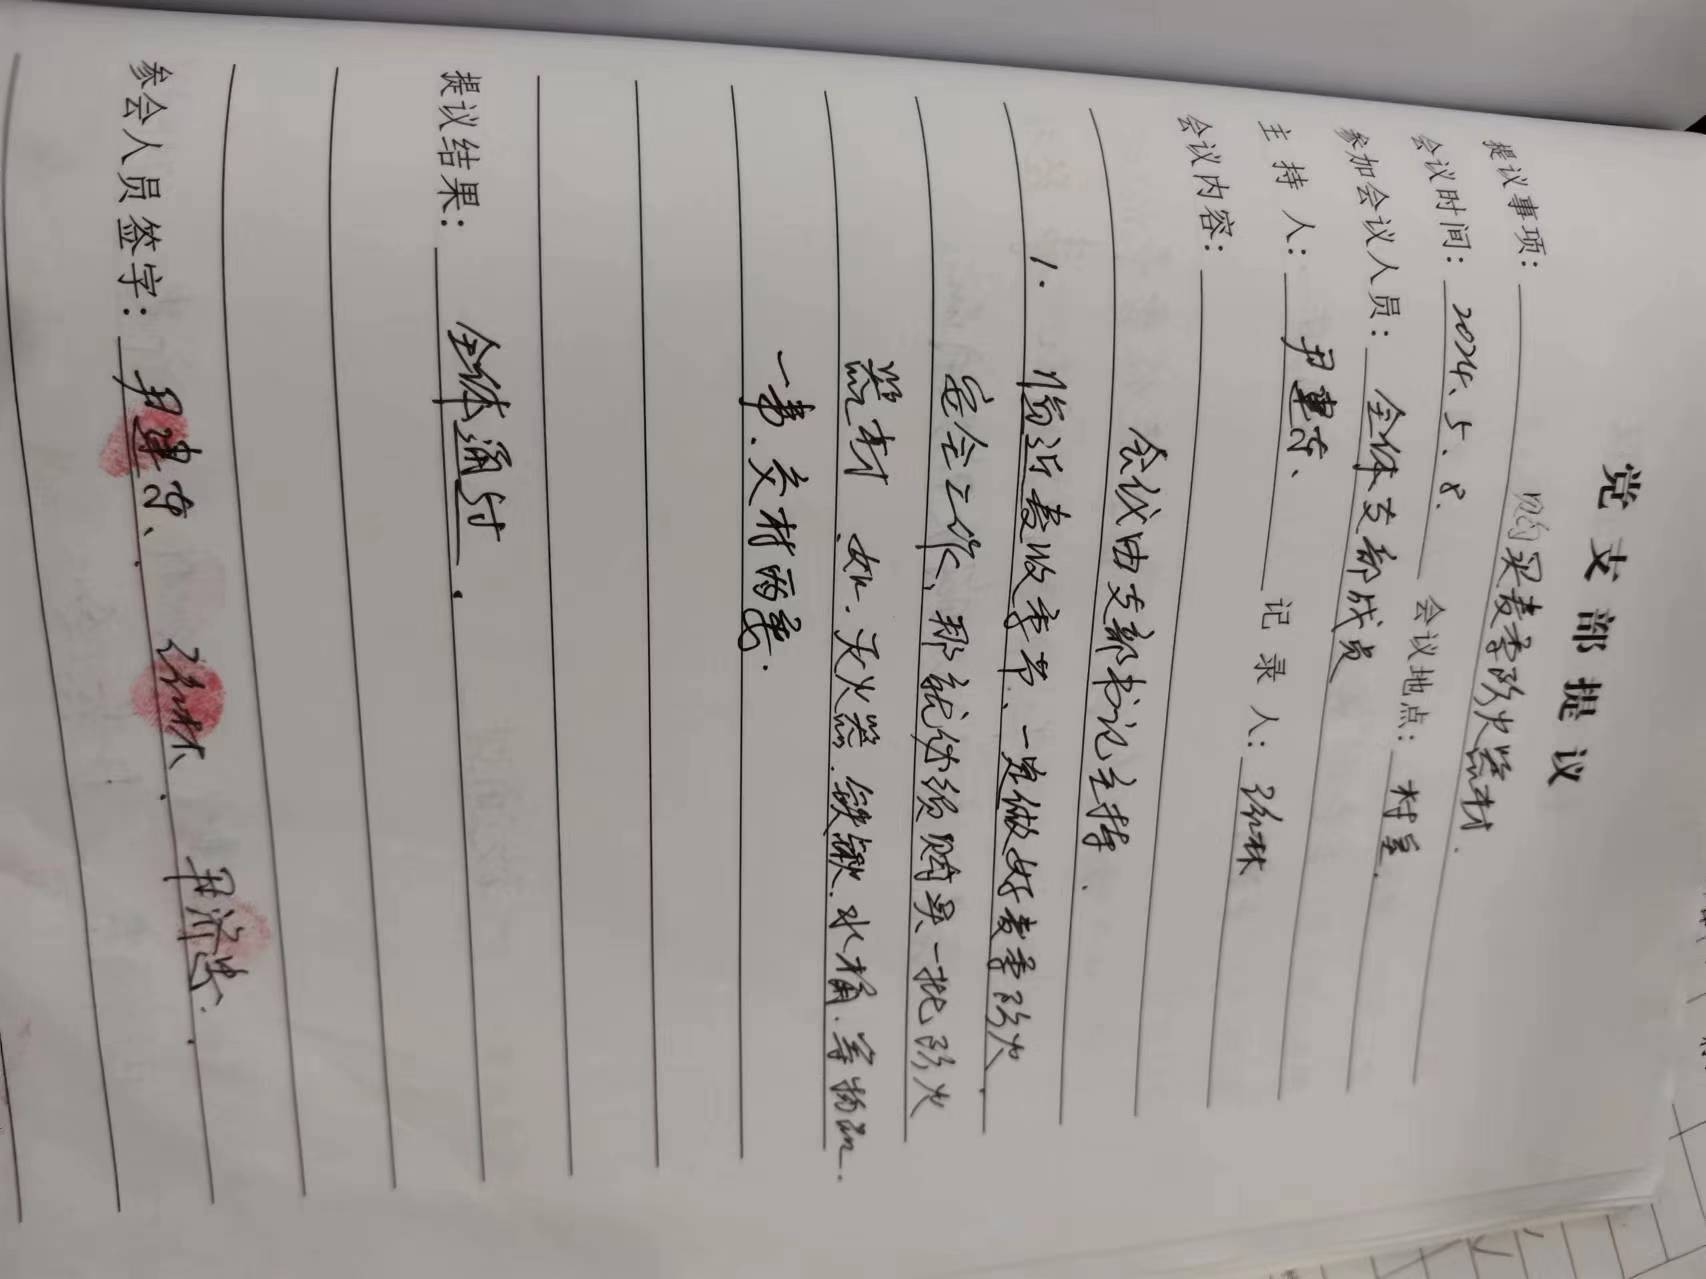 党支部提议
提议事项：购买麦季防火器材.
会议时间：2024.5.8. 会议地点：村室.
参加会议人员：全体支部成员
主持人：尹建 记录人：
会议内容：
会议由支部书记主持.
1. 临近麦收季节.一定做好麦季防火.
安全工作、那就必须购买一批防火
器材.如.灭火器.铁锨.水桶.等物品.
一事.交村两委.
提议结果：全体通过.
参会人员签字：尹建